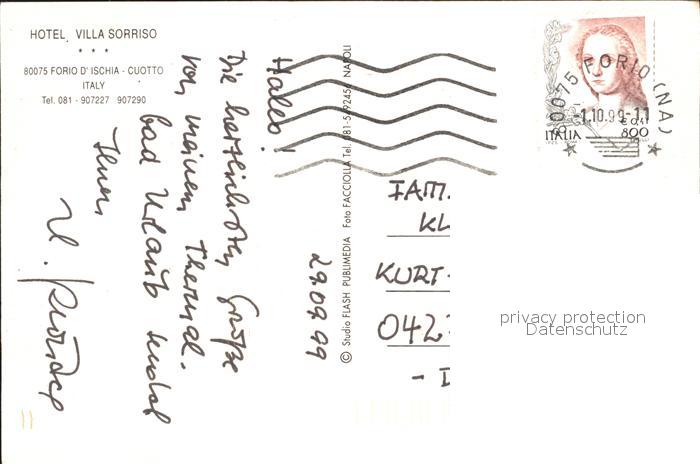 HOTEL VILLA SORRISO
* * *
80075 FORIO D'ISCHIA - CUOTTO
ITALY
Tel. 081 - 907227 907290
29.09.99
Hallo!
Die herzlichsten Grüße
von meinem Thermal-
bad Urlaub sendet
Ihnen
© Studio FLASH PUBLIMEDIA Foto FACCIOLLA Tel. 081-5492456 NAPOLI
80075 FORIO (NA)
-1.10.99-11
€ 0,41
ITALIA 800
FAM.
KL
KURT-
042
privacy protection
Datenschutz